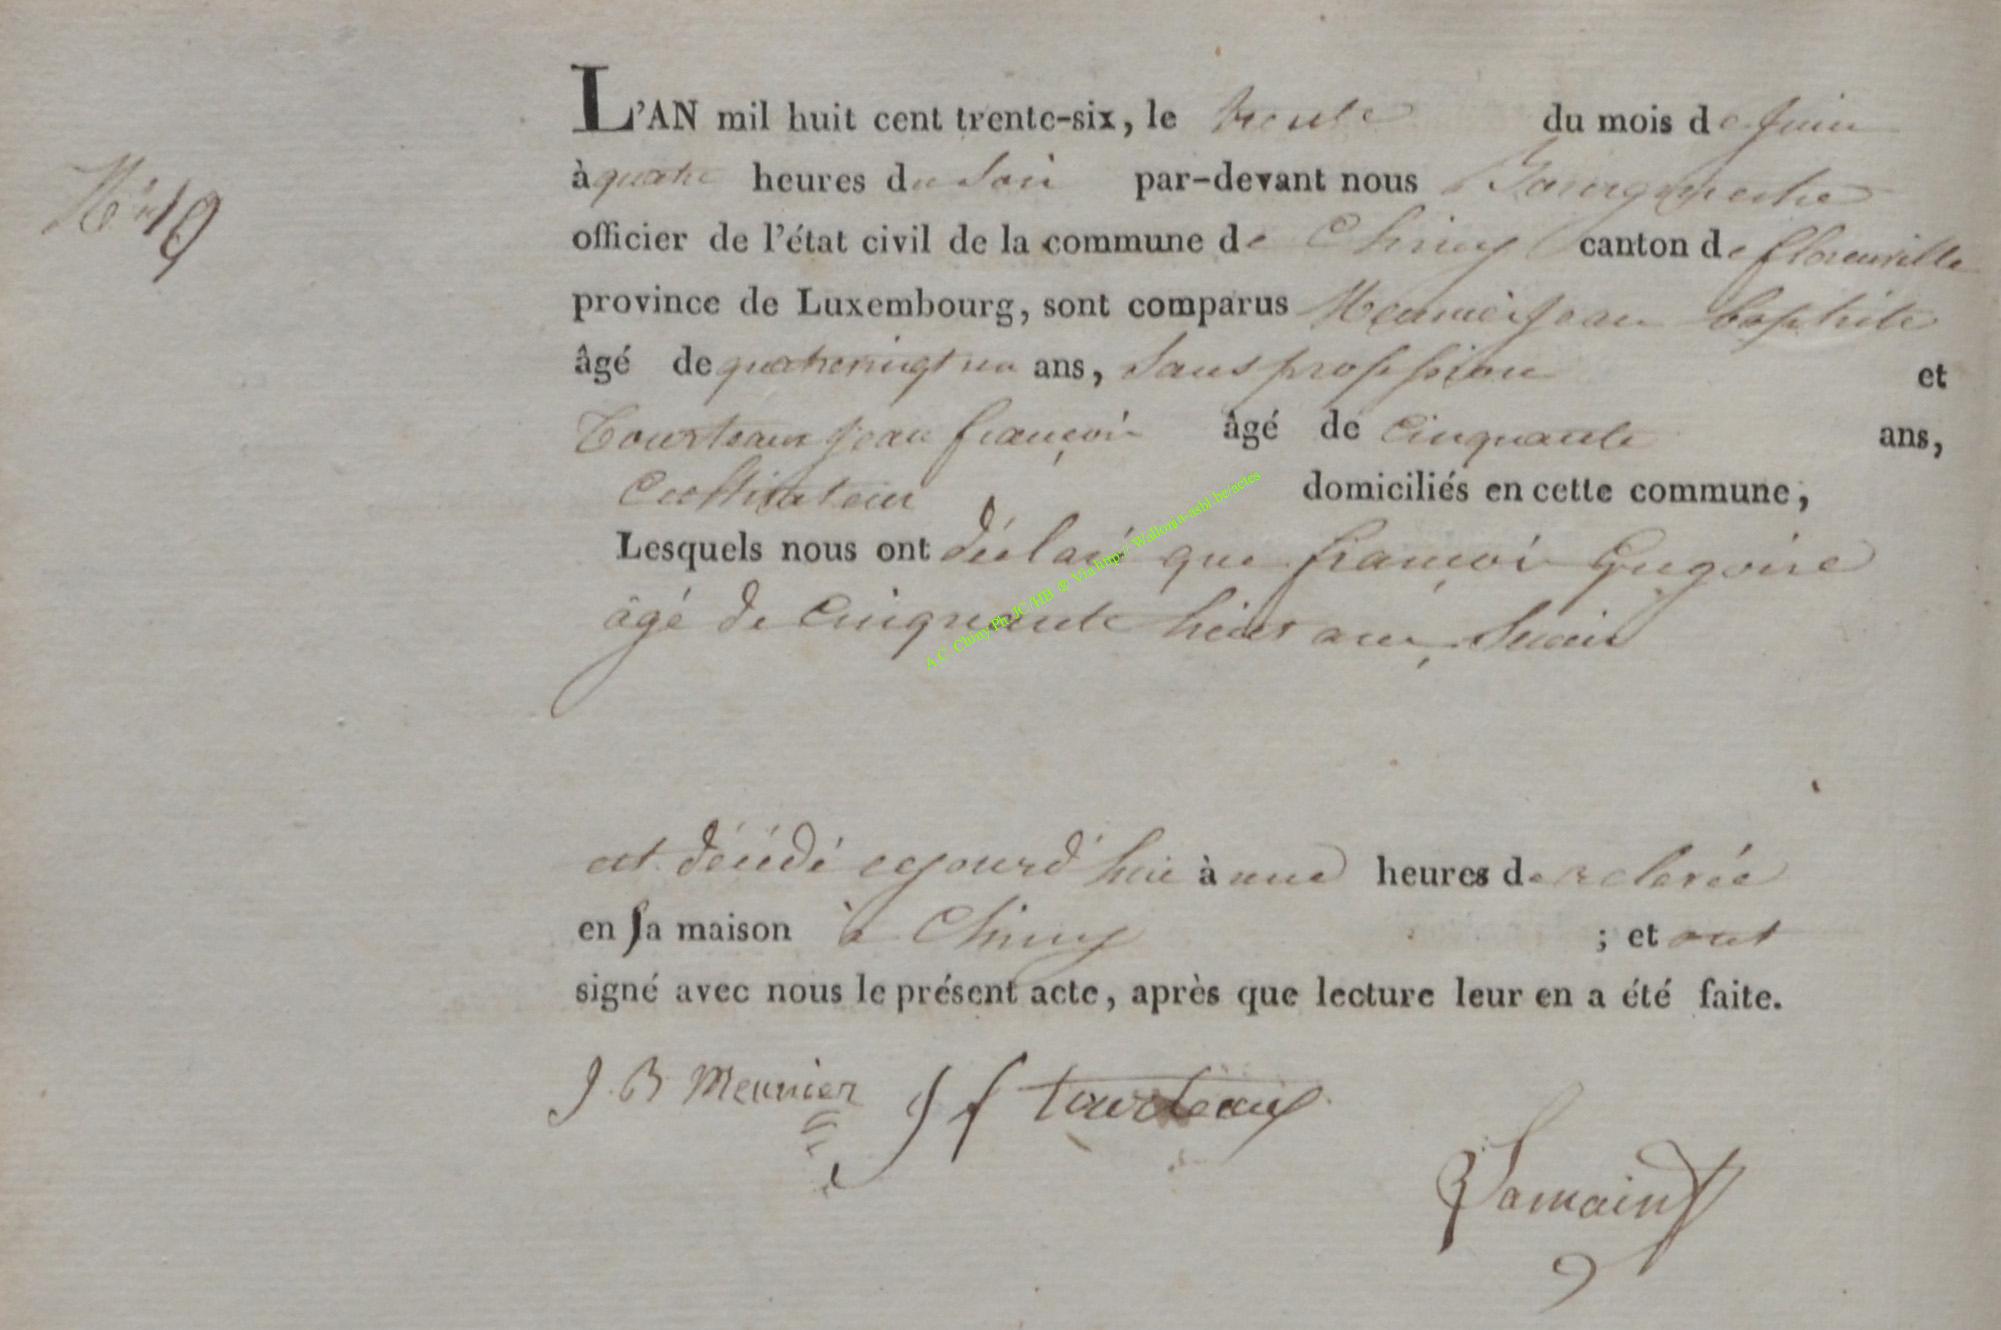 N° 19
L'AN mil huit cent trente-six, le trente du mois de juin
à quatre heures du soir par-devant nous Bourgmestre
officier de l'état civil de la commune de Chiny canton de florenville
province de Luxembourg, sont comparus Meunier jean baptiste
âgé de quatrevingt un ans, sans profession et
Tourteaux jean françois âgé de cinquante ans,
Cultivateur domiciliés en cette commune,
Lesquels nous ont déclaré que françois Gregoire
âgé de cinquante huit ans,
est décédé aujourd'hui à une heures de relevée
en sa maison à Chiny ; et ont
signé avec nous le présent acte, après que lecture leur en a été faite.
J. B Meunier J f tourteaux
Jamain
A.C. Chiny Ph. JC/HB © Via http:// Wallonia-asbl.be/actes